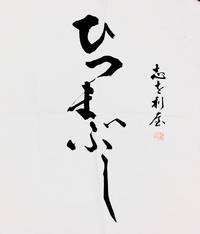 ひつまぶし
志を利屋